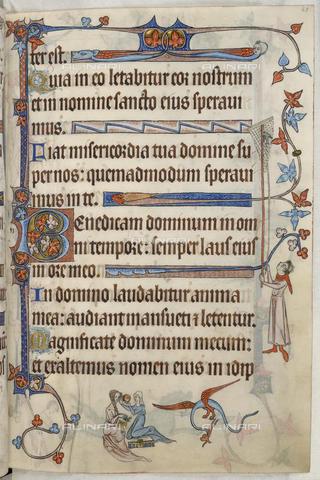 ter est.
Quia in eo letabitur cor nostrum
et in nomine sancto eius speraui
mus.
Fiat misericordia tua domine su
per nos: quemadmodum speraui
mus in te.
Benedicam dominum in om
ni tempore: semper laus eius
in ore meo.
In domino laudabitur anima
mea: audiant mansueti & letentur.
Magnificate dominum mecum:
et exaltemus nomen eius in idip
ALINARI
ALINARI